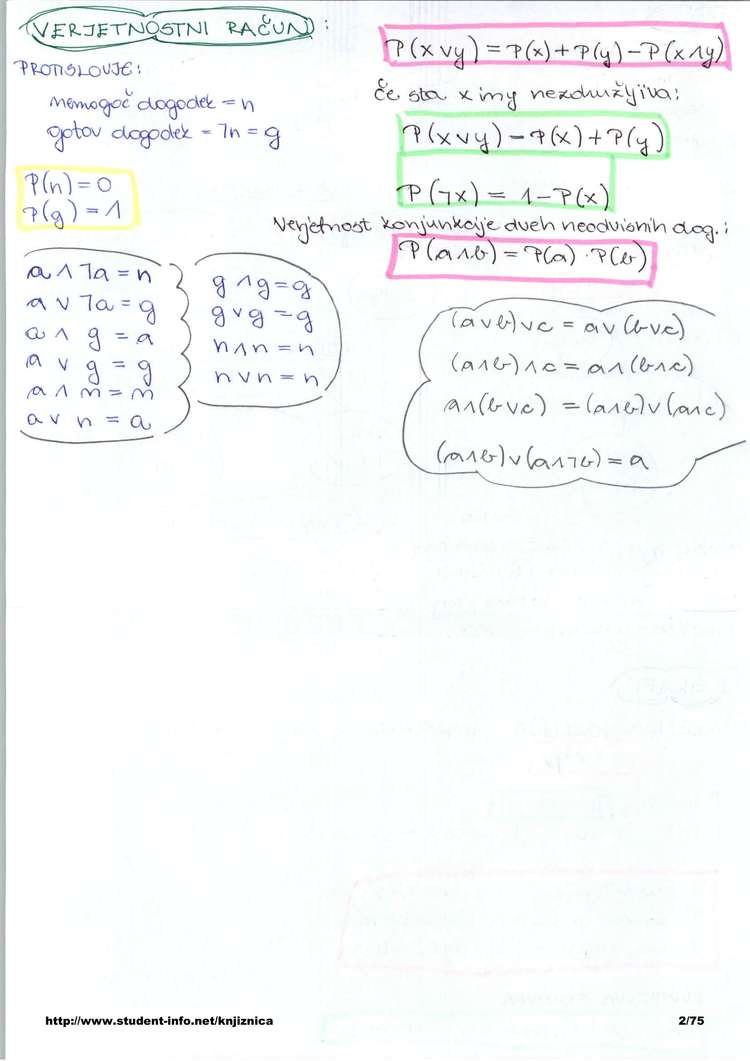 VERJETNOSTNI RAČUN:
PROTISLOVJE:
nemogoč dogodek = n
gotov dogodek = ¬n = g
P(n) = 0
P(g) = 1
a ∧ ¬a = n
a ∨ ¬a = g
a ∧ g = a
a ∨ g = g
a ∧ n = n
a ∨ n = a
g ∧ g = g
g ∨ g = g
n ∧ n = n
n ∨ n = n
P(x ∨ y) = P(x) + P(y) - P(x ∧ y)
Če sta x in y nezdružljiva:
P(x ∨ y) - P(x) + P(y)
P(¬x) = 1 - P(x)
Verjetnost konjunkcije dveh neodvisnih dog.:
P(a ∧ b) = P(a) · P(b)
(a ∨ b) ∨ c = a ∨ (b ∨ c)
(a ∧ b) ∧ c = a ∧ (b ∧ c)
a ∧ (b ∨ c) = (a ∧ b) ∨ (a ∧ c)
(a ∧ b) ∨ (a ∧ ¬b) = a
http://www.student-info.net/knjiznica
2/75